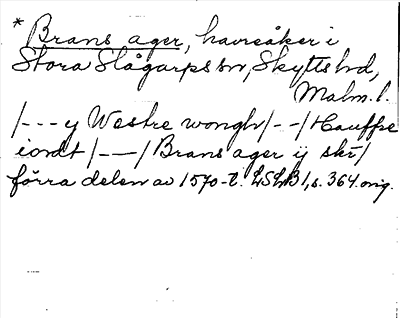 * Brans ager, havreåker i
Stora Slågarps sn, Skytts hd,
Malm. l.
/---y Westre wongh/--/Hauffre
iordt/---/Brans ager ij skr/
förra delen av 1570-t. LSLB 1, s. 364. orig.